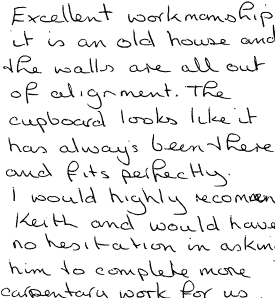 Excellent workmanship
it is an old house and
the walls are all out
of alignment. The
cupboard looks like it
has always been there
and fits perfectly.
I would highly recomen
Keith and would have
no hesitation in askin
him to complete more
carpentary work for us